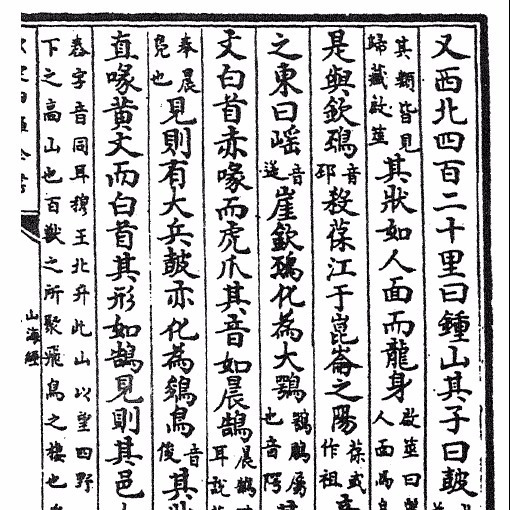 又西北四百二十里曰鍾山其子曰鼓
其類皆見
歸藏啟筮
其狀如人面而龍身
啟筮曰
人面馬身
是與欽䲹
音
邳
殺葆江于崑崙之陽
葆或
作祖
之東曰㟙
音
遥
崖欽䲹化為大鶚
鵰屬
也音
文白首赤喙而虎爪其音如晨鵠
晨鵠
耳說
奉晨
鳬也
見則有大兵鼓亦化為鵕鳥
音
俊
其狀
直喙黃文而白首其形如鵠見則其邑
舂字音同耳穆王北升此山以望四野
下之高山也百獸之所聚飛鳥之棲也
山海經